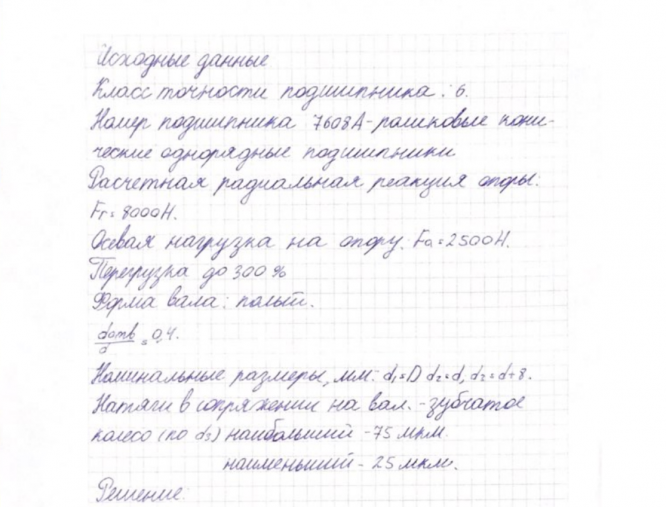 Исходные данные
Класс точности подшипника: 6.
Номер подшипника 7608А - роликовые кони-
ческие однорядные подшипники
Расчетная радиальная реакция опоры.
Fr = 8000Н.
Осевая нагрузка на опору. Fa = 2500Н.
Перегрузка до 300 %
Форма вала: полый.
dотв/d = 0,4.
Номинальные размеры, мм: d₁=D d₂=d, d₃=d+8.
Натяги в сопряжении на вал. - зубчатое
колесо (по d₃) наибольший - 75 мкм
наименьший - 25 мкм.
Решение: